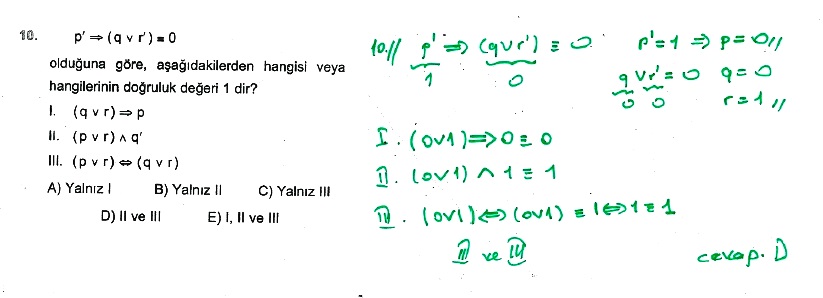 10. p′ ⇒ (q ∨ r′) ≡ 0
olduğuna göre, aşağıdakilerden hangisi veya
hangilerinin doğruluk değeri 1 dir?
I. (q ∨ r) ⇒ p
II. (p ∨ r) ∧ q′
III. (p ∨ r) ⇔ (q ∨ r)
A) Yalnız I B) Yalnız II C) Yalnız III
D) II ve III E) I, II ve III
10.// p′ ⇒ (q∨r′) ≡ 0
1 0
p′=1 ⇒ p=0//
q∨r′=0 q=0
0 0 r=1//
I. (0∨1)⇒0 ≡ 0
II. (0∨1) ∧ 1 ≡ 1
III. (0∨1)⇔(0∨1) ≡ 1⇔1 ≡ 1
II ve III cevap. D